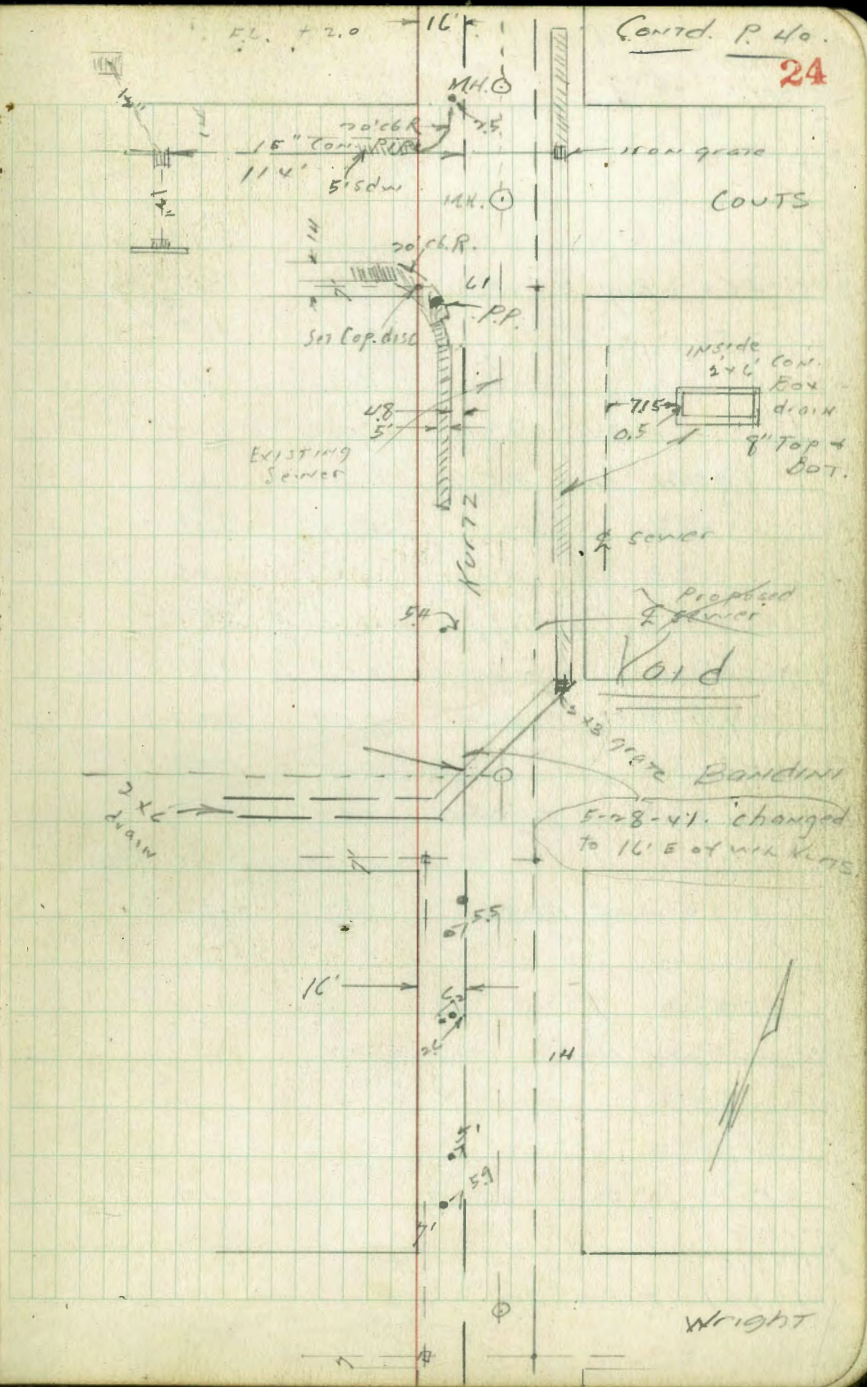 EL. + 2.0
16'
Contd. P. 40.
24
M.H.
20' cb R
7.5
15" Conc. Pipe
114'
5' sdw
14
iron grate
COUTS
M.H.
20' cb. R.
14
7'
61
P.P.
Set Cop. disc
Inside
2' x 6' Con.
Box
drain
8" Top +
Bot.
7.15
0.5
4.8
5'
Existing
Sewer
Kurtz
℄ sewer
5.4
Proposed
℄ sewer
Void
2 x 3 grate
Bandini
2 x 6
drain
5-28-41. changed
to 16' E of
7'
5.5
16'
14
5.9
7'
Wright
7